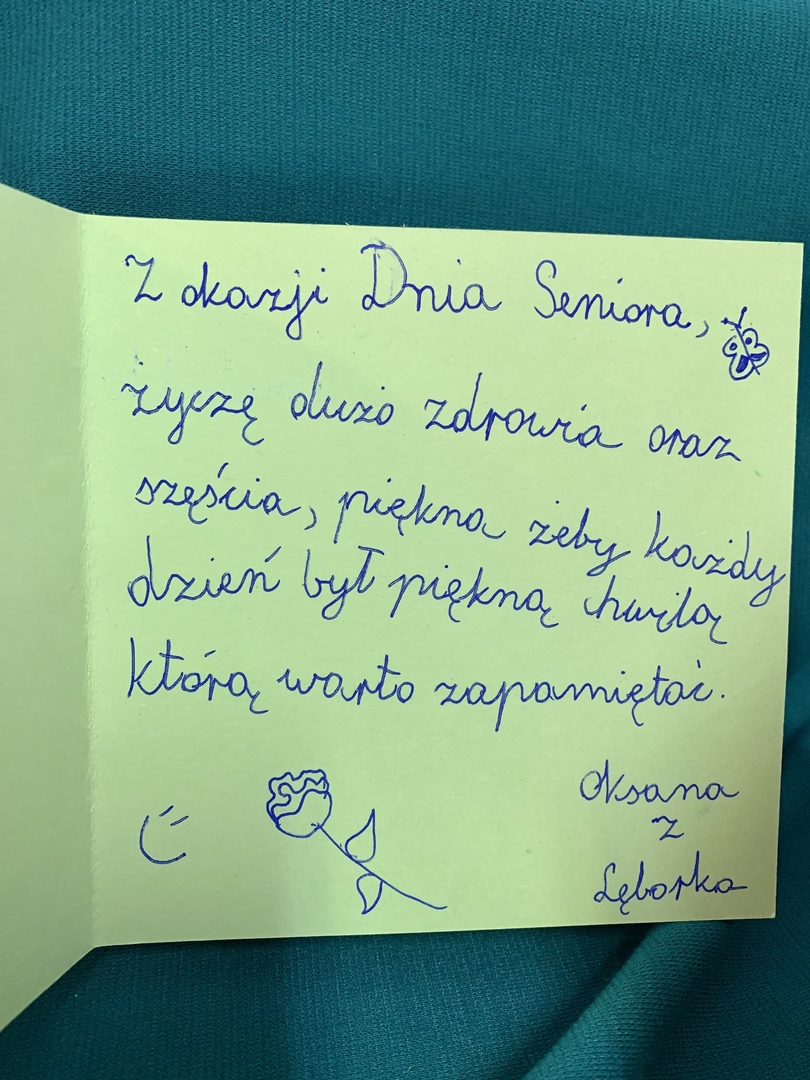 Z okazji Dnia Seniora,
życzę dużo zdrowia oraz
szęścia, piękna żeby każdy
dzień był piękną chwilą
którą warto zapamiętać.
Oksana
z
Lęborka